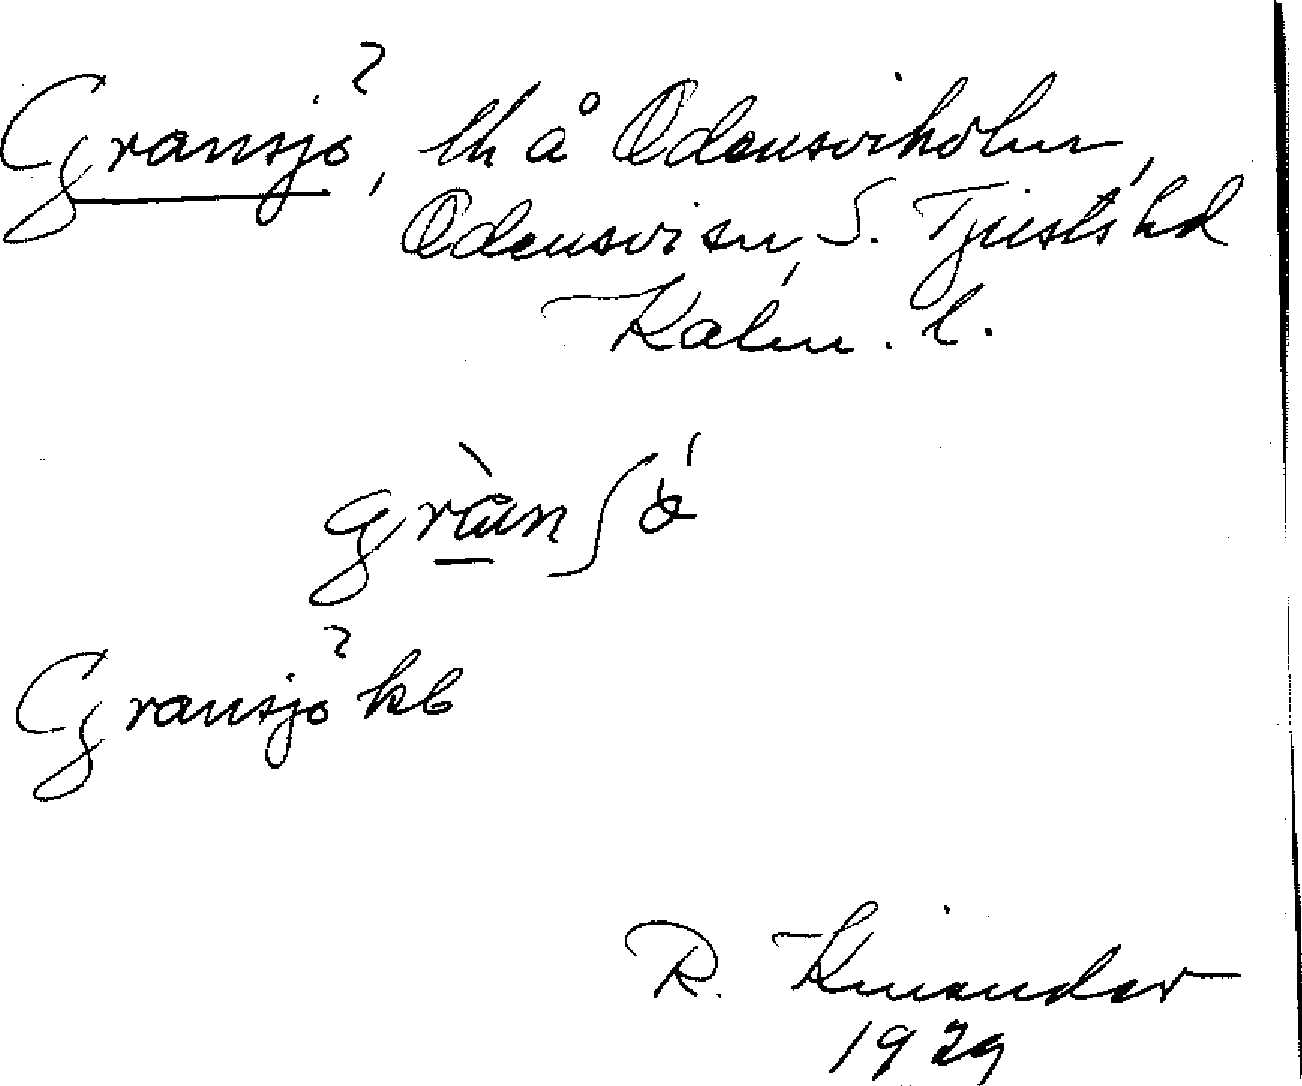 Gransjö, lh å Odensviholm,
Odensvi sn, S. Tjusts hd
Kalm. l.
grànʃǿ
Gransjö kb
R. Kinander
1929